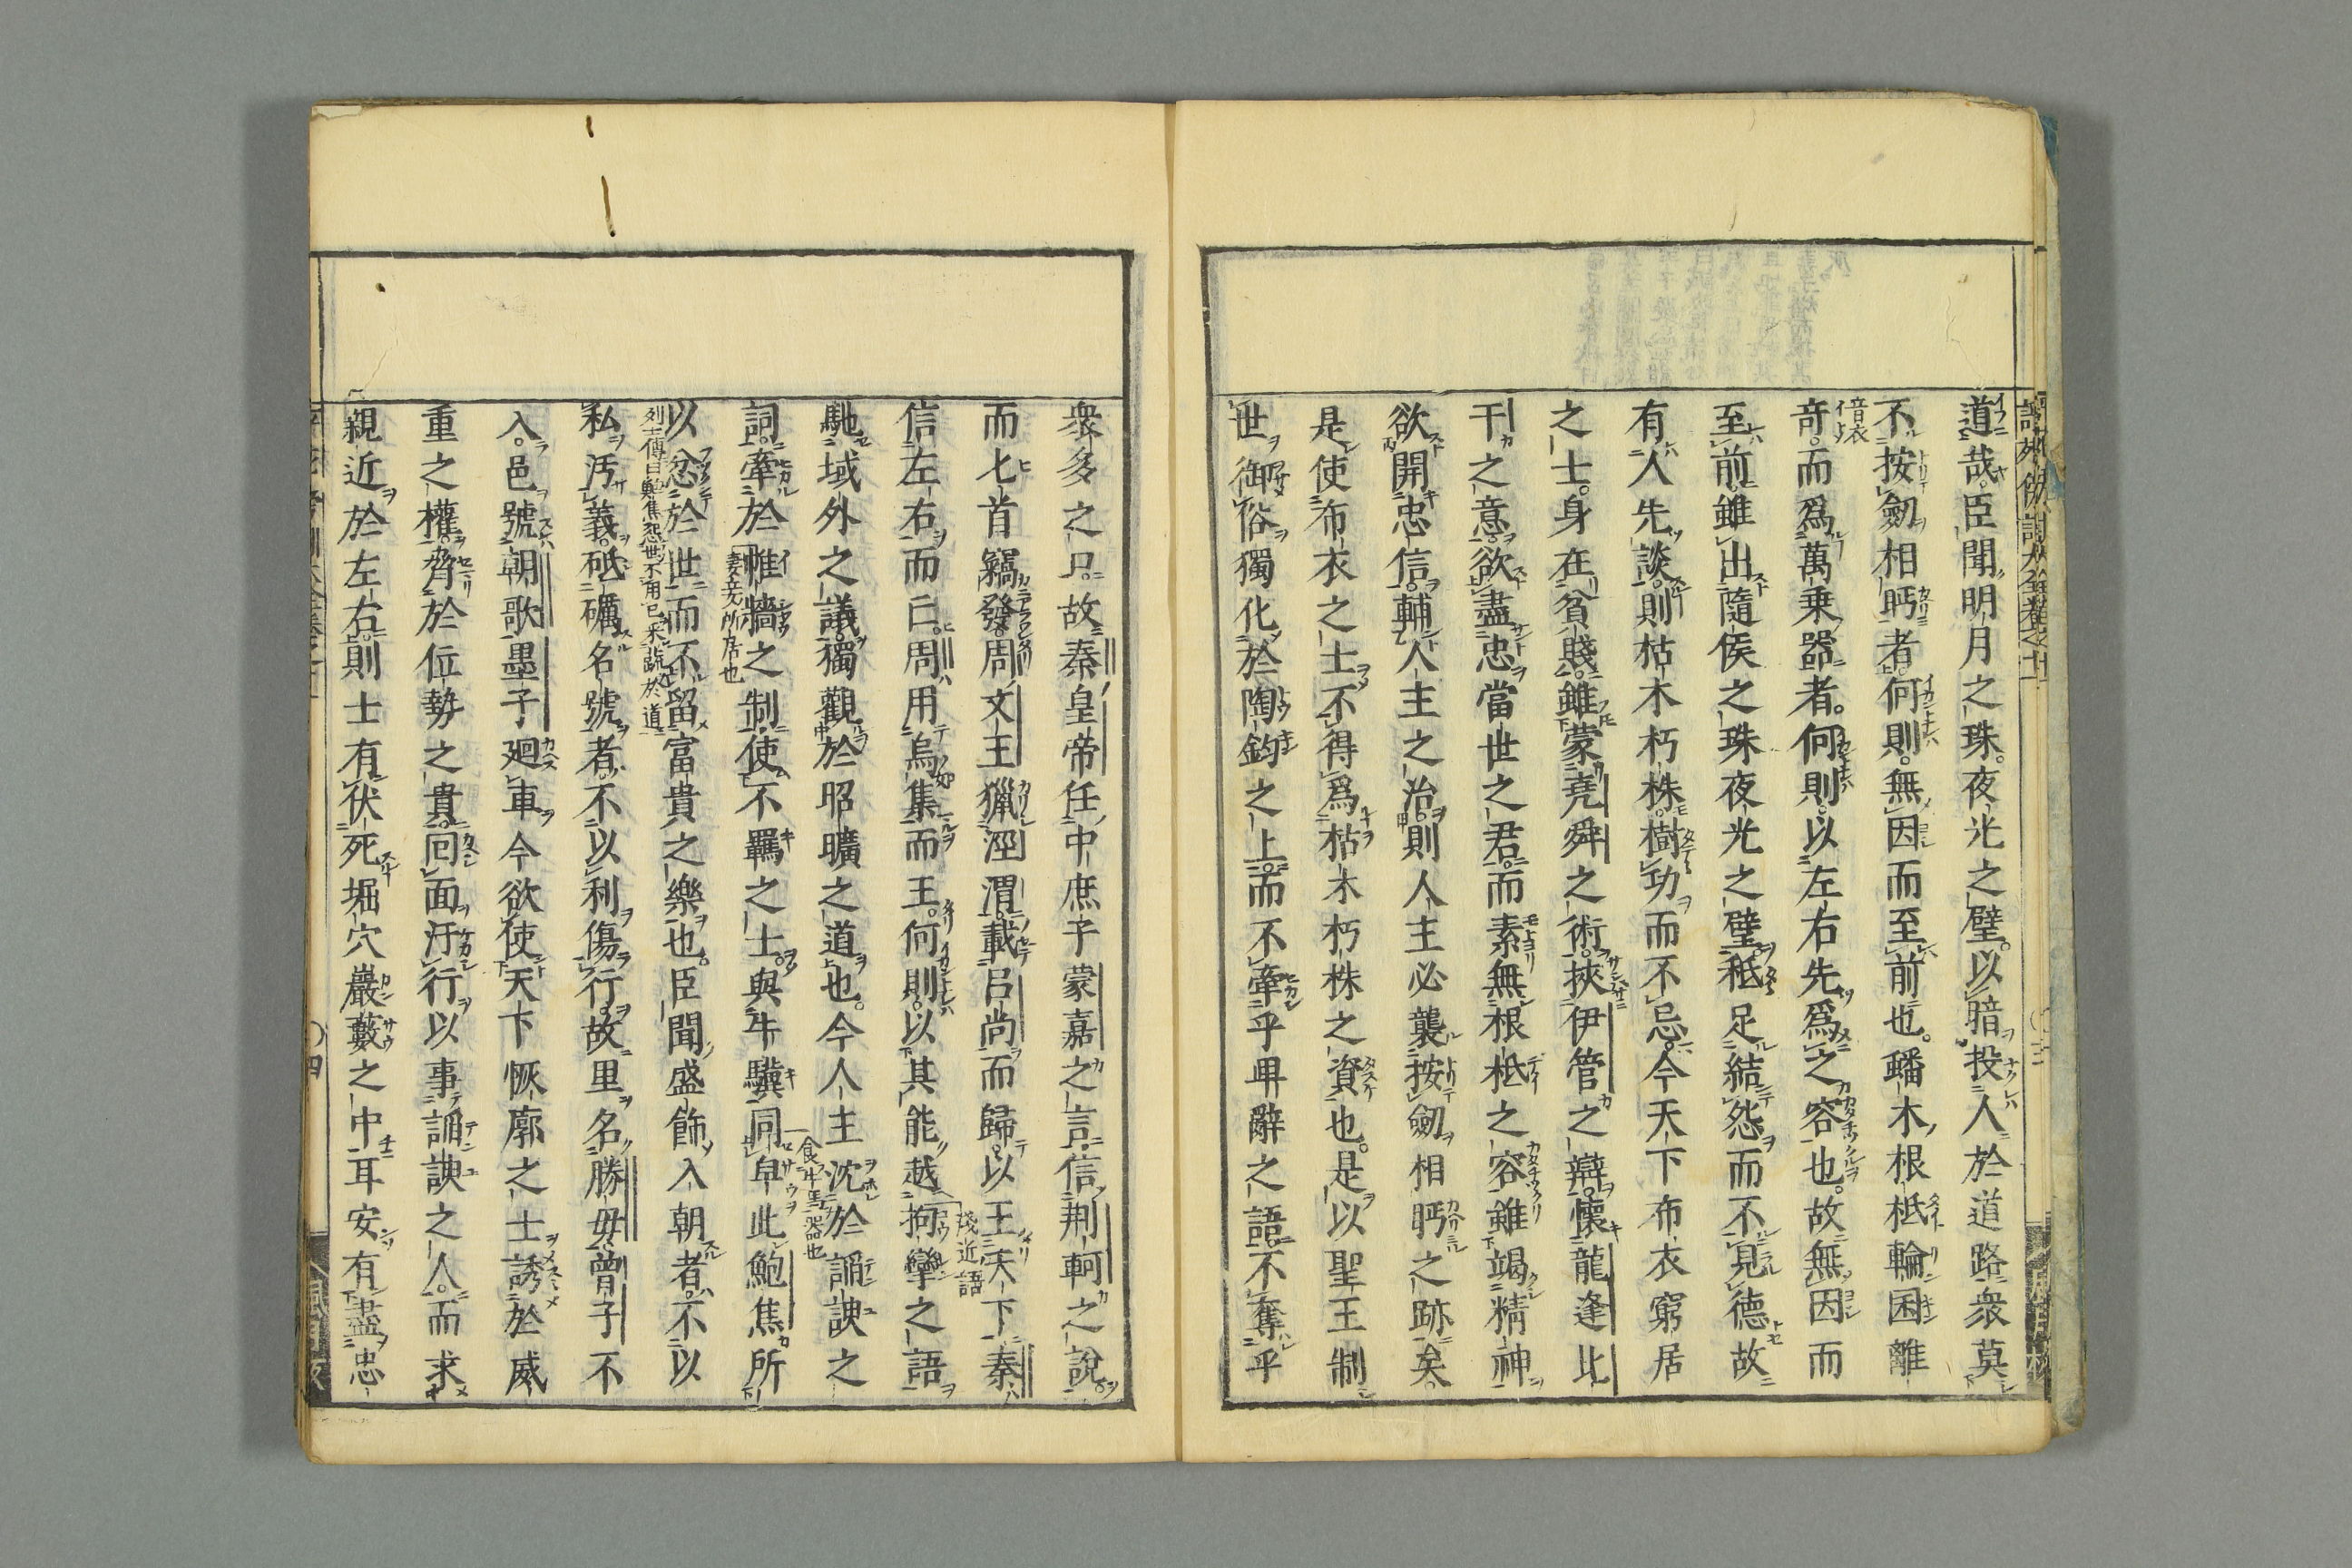 道哉臣聞明月之珠。夜光之璧。以暗投人於道路衆莫
不按劒相眄者。何則。無因而至前也。蟠木根柢輪囷離
奇。而爲萬乗器者。何則。以左右先爲之容也。故無因而
至前雖出隨侯之珠夜光之璧秪足結怨而不見德故
有人先談。則枯木朽株。樹功而不忘。今天下布衣窮居
之士。身在貧賤。雖蒙堯舜之術。挾伊管之辯。懷龍逢比
干之意。欲盡忠當世之君。而素無根柢之容雖竭精神
欲開忠信。輔人主之治。則人主必襲按劒相眄之跡矣。
是使布衣之士不得爲枯木朽株之資也。是以聖王制
世御俗獨化於陶鈞之上。而不牽乎毘辭之語。不奪乎
衆多之口。故秦皇帝任中庶子蒙嘉之言。信荆軻之說。
而匕首竊發。周文王獵涇渭。載呂尚而歸。以王天下。秦
信左右而亡。周用烏集而王。何則。以其能越拘攣之語
淺近語
馳域外之議。獨觀於昭曠之道也。今人主沈於諂諛之
食牛馬器也
詞。牽於帷牆之制。使不羈之士。與牛驥同皁此鮑焦所
妻妾所居也
以忿於世而不留富貴之樂也。臣聞盛飾入朝者。不以
列士傳曰鮑焦怨世不用己采蔬於道
私汚義。砥礪名號者。不以利傷行。故里名勝母。曾子不
入。邑號朝歌。墨子廻車今欲使天下恢廓之士誘於威
重之權。脅於位勢之貴。回面汙行以事諂諛之人。而求
親近於左右。則士有伏死堀穴巖藪之中耳安有盡忠
四